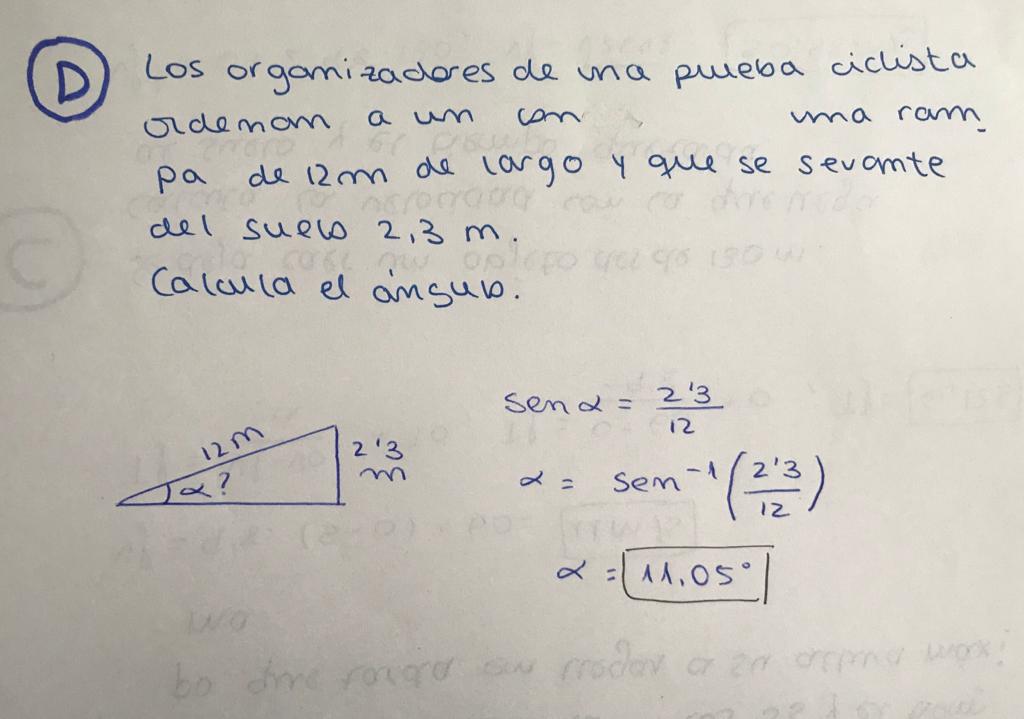 D
Los organizadores de una prueba ciclista
ordenan a un una ram_
pa de 12m de largo y que se sevante
del suelo 2,3 m.
Calcula el ángulo.
sen α = 2'3/12
12m
2'3
m
α?
α = sen⁻¹(2'3/12)
α = 11,05°